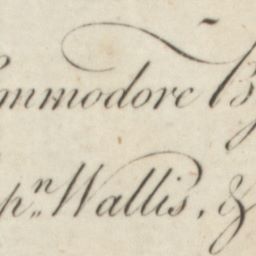 ommodore B
pn Wallis, &